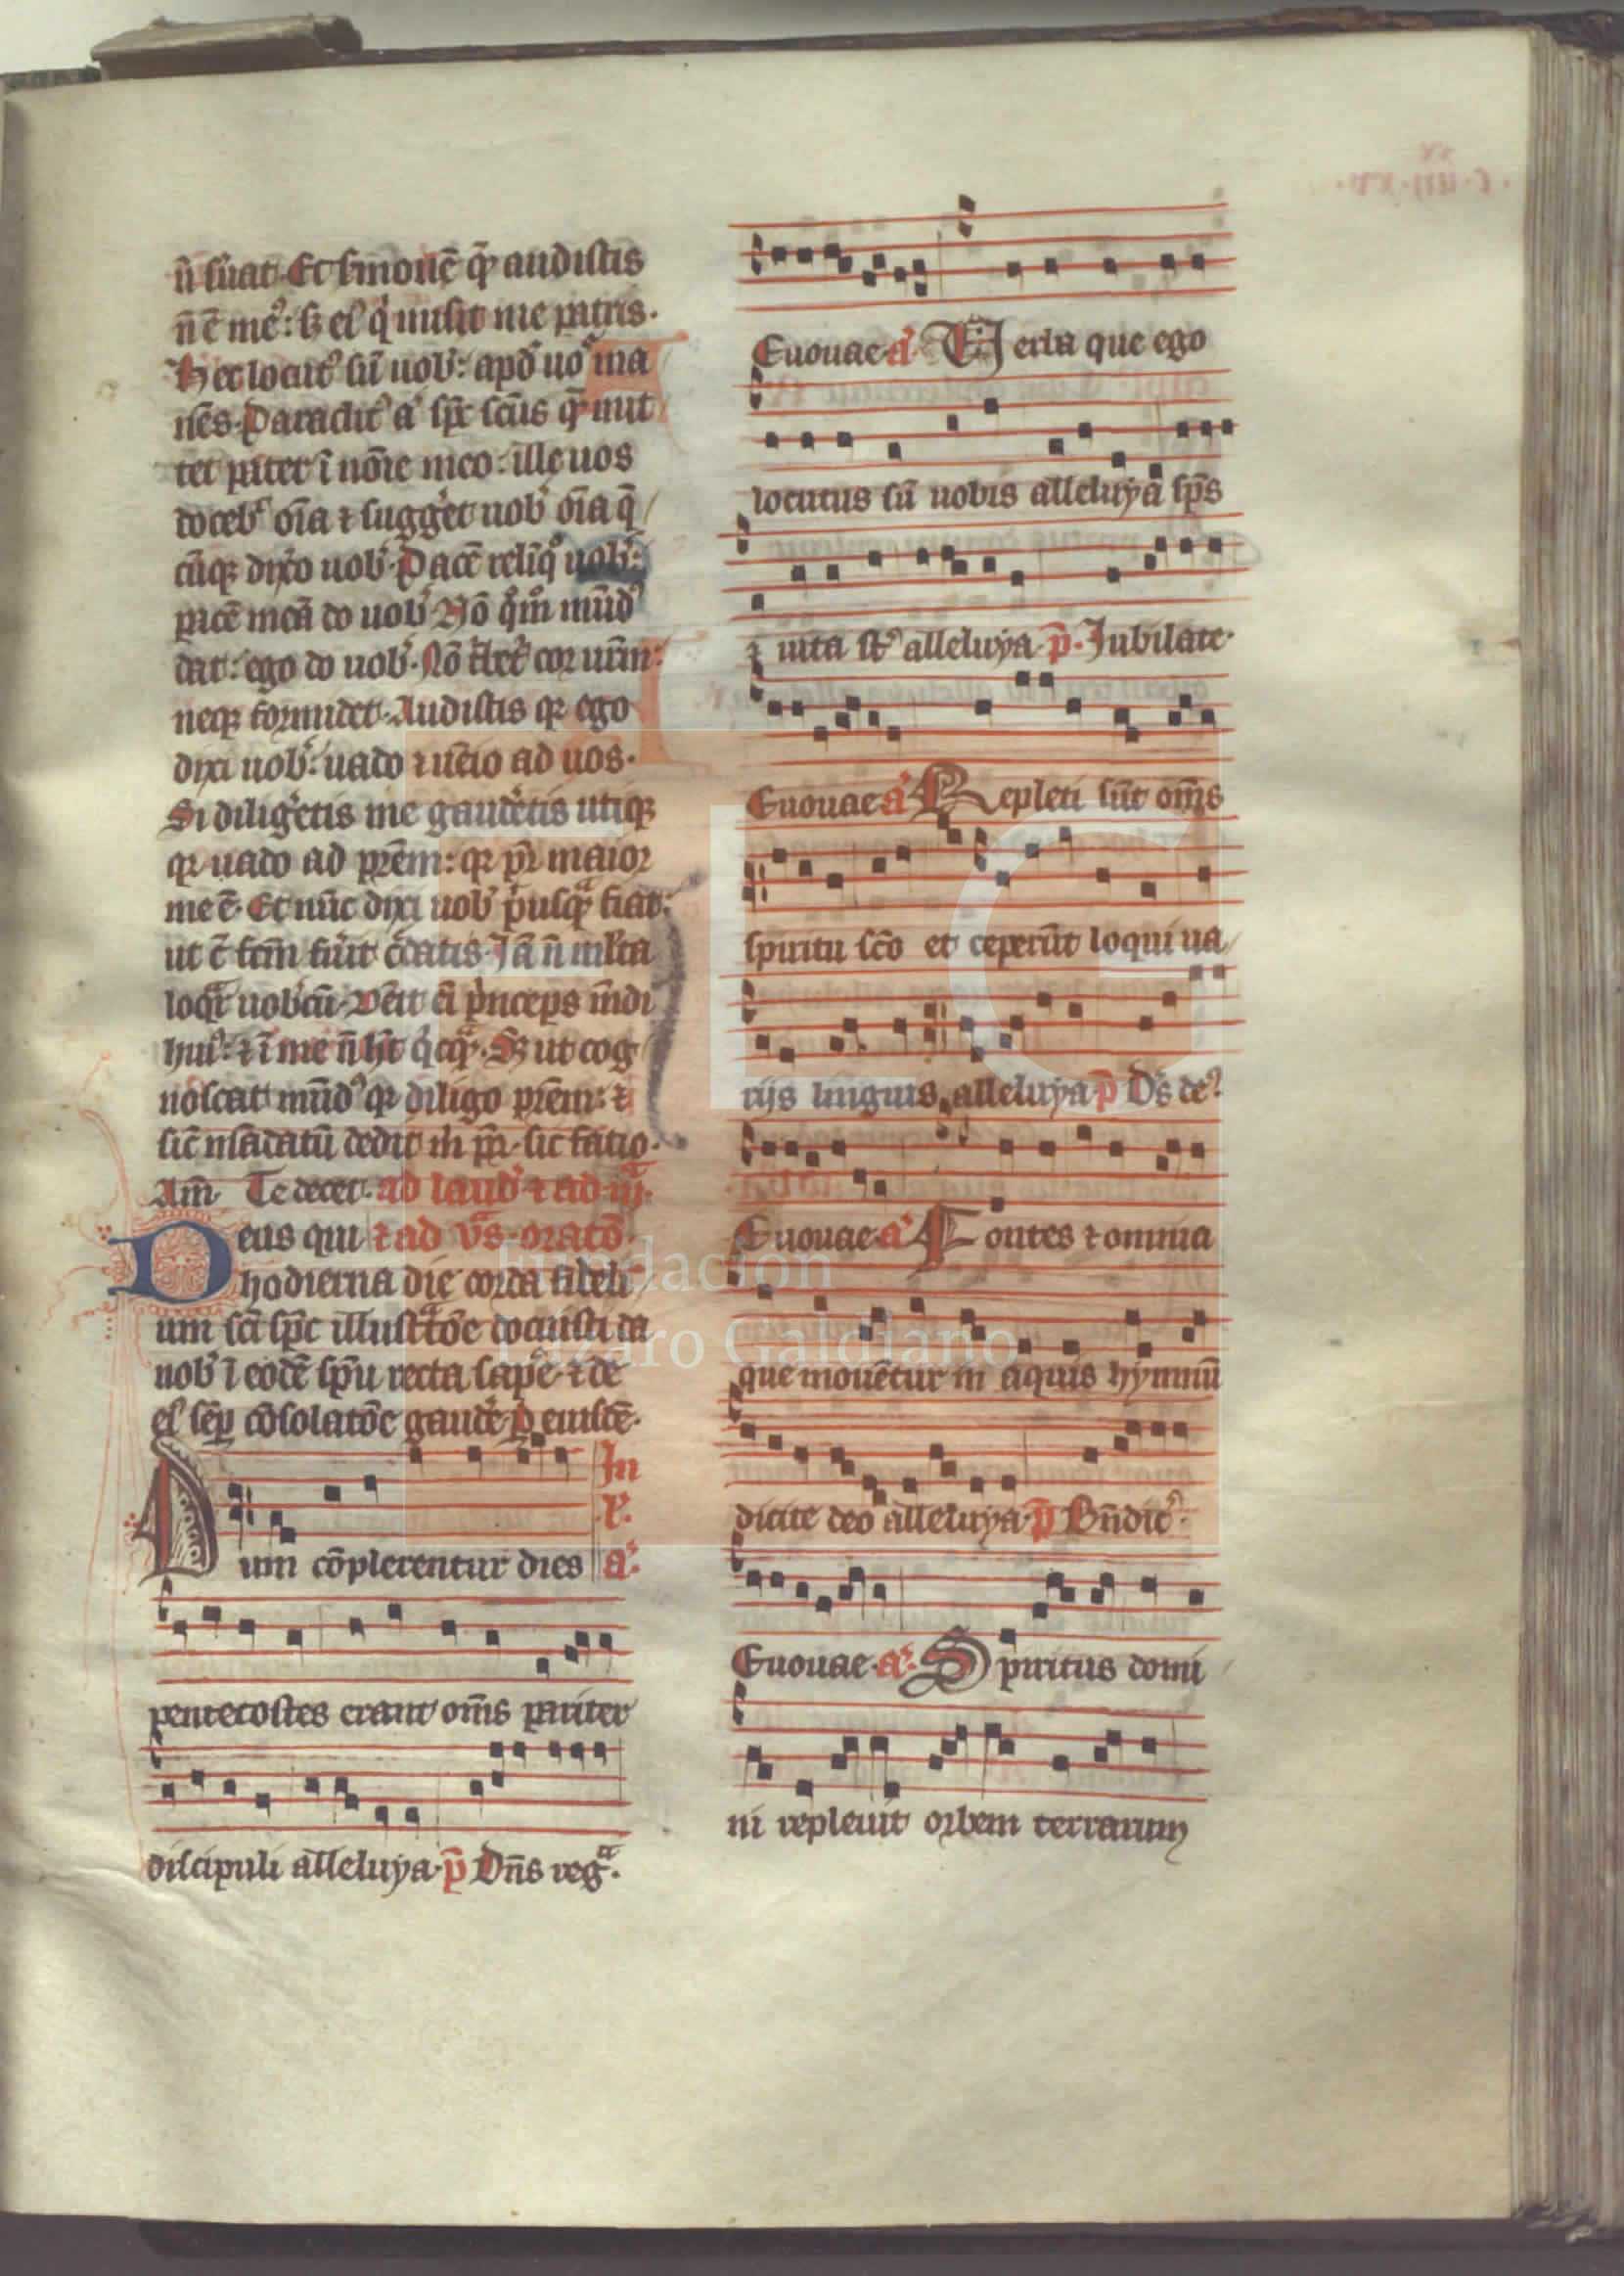 n̄ ẜuat· Et ẜmonē q̄ꝫ audistis
n̄ ē meꝰ: ſꝫ eiꝰ qͥ misit me patris·
Hec locutꝰ sū uob̓: apđ uoͣ ma
nēs· Paraclitꝰ aͧ sp̄c sc̄us q̄ꝫ mit
tet pater ī nōıe meo: ille uos
doceb᷑ oīa ⁊ sugg̓et uob̓ oīa q̄
cūqꝫ dixͦo uob̓· Pacē relīqͦ uob̓:
pacē meā do uob̓· Nō qͦm̊ mūdꝰ
dat: ego do uob̓· Nō t̄bet̓ cor ur̄m:
neqꝫ formidet· Audistis qꝛ ego
dixi uob̓: uado ⁊ uēio ad uos·
Si diligͤetis me gaudͤetis utiqꝫ
qꝛ uado ad pr̄em: qꝛ pr̄ maior
me ē· Et nūc dixi uob̓ pͥusqͣꝫ fiat:
ut c̄ fc̄m fuͤit cͤdatis· Jā n̄ ml̓ta
loqͣr uob̓cū· Vēit eī pͥnceps m̄di
huiꝰ: ⁊ ī me n̄ hꝫ qͥcqͣꝫ· Sꝫ ut cog
noscat mūdꝰ qꝛ diligo pr̄em: ⁊
sic̄ mādatū dedit m̄ pr̄· sic fatio·
Am̄· Te decet· ad laud̓ ⁊ ad iijͣ·
Deus qui ⁊ ad vͣs· oratō·
hodierna die corda fideli
um sc̄i sp̄c illustͣtōe docuisti da
nob̓ ī eodē sp̄u recta sapͤe· ⁊ de
eiꝰ sēꝑ cōsolatōe gaudͤe· p̄ eiusdē·
In
Dum cōplerentur dies p̄· aͣ·
pentecostes erant om̄s pariter
discipuli alleluya· p̄ Dn̄s regͣ·
Euouae· aͣ Uerba que ego
locutus sū uobis alleluya sp̄s
⁊ uita st̓ alleluya· p̄· Jubilate·
Euouae aͣ Repleti sūt om̄s
spiritu sc̄o et ceperūt loqui ua
rijs linguis, alleluya p̄ Ds̄ deꝰ
Euouae· aͣ Fontes ⁊ omnia
que mouētur in aquis hymnū
dicite deo alleluya· p̄ Bn̄dicͤ·
Euouae· aͣ· Spiritus domi
ni repleuit orbem terrarum
Fundación
Lázaro Galdiano